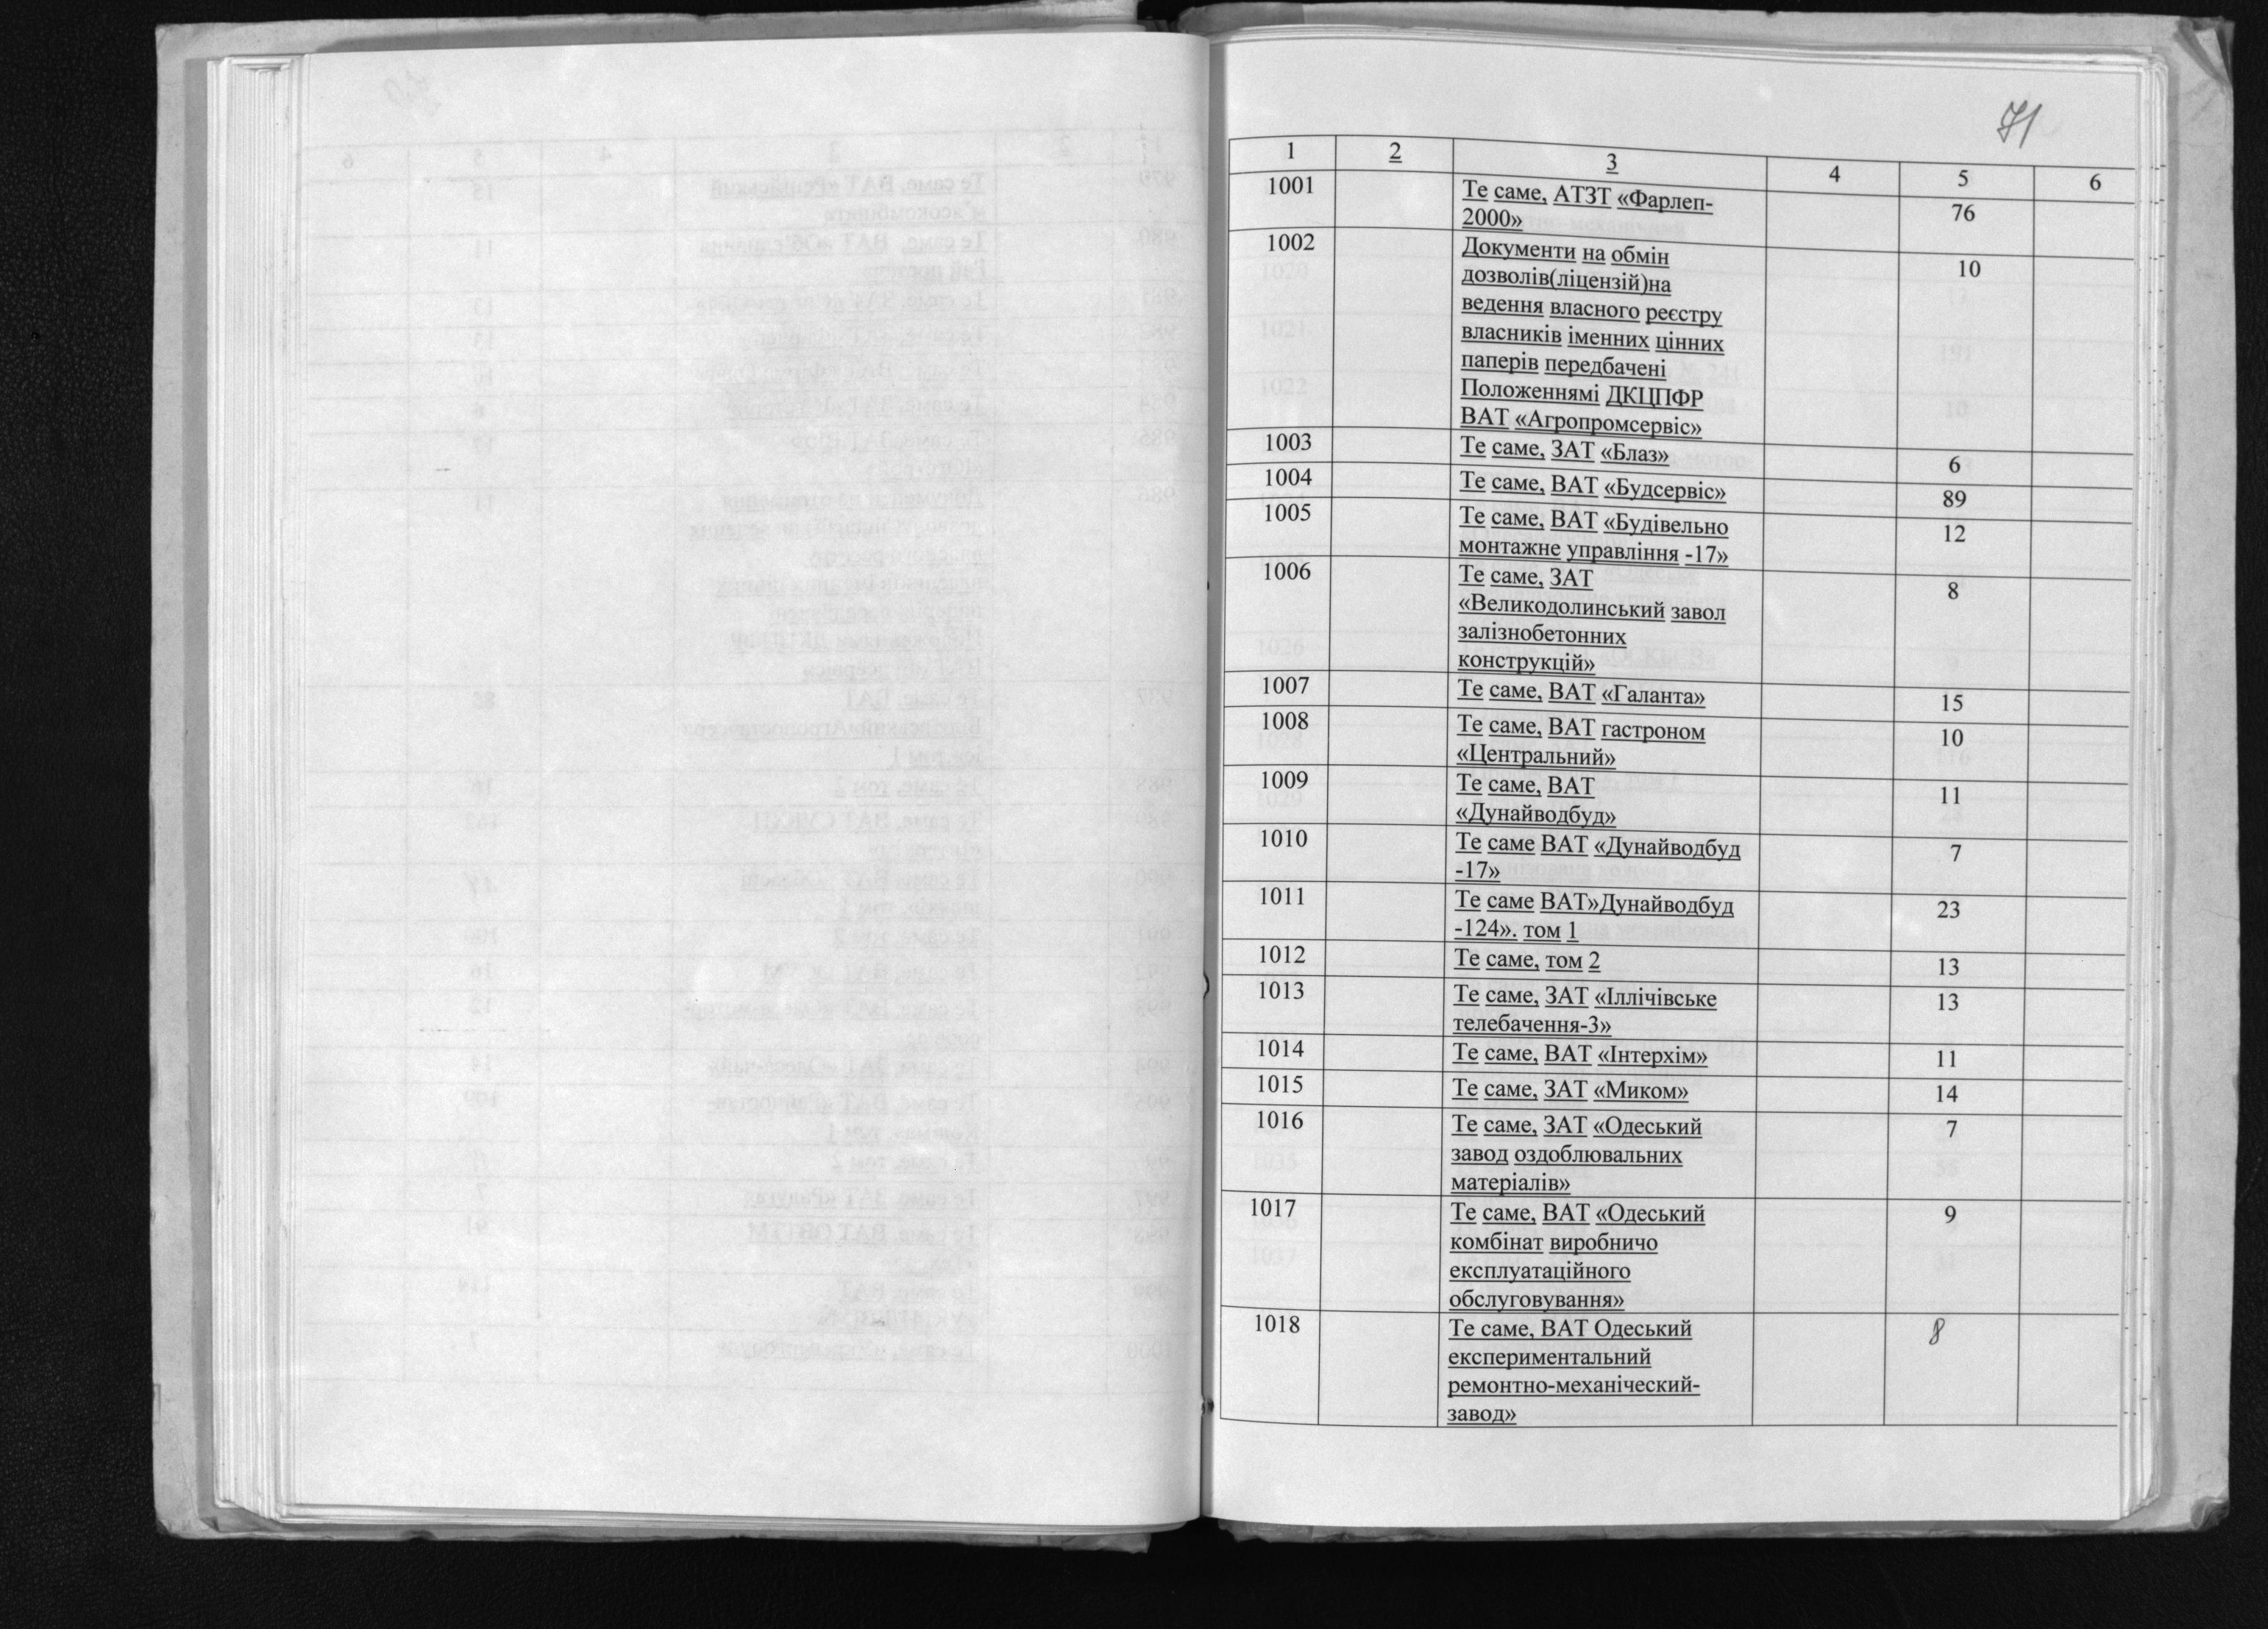 71
1 2 3 4 5 6
1001 Те саме, АТЗТ «Фарлеп- 76
2000»
1002 Документи на обмін 10
дозволів(ліцензій)на
ведення власного реєстру
власників іменних цінних
паперів передбачені
Положеннямі ДКЦПФР
ВАТ «Агропромсервіс»
1003 Те саме, ЗАТ «Блаз» 6
1004 Те саме, ВАТ «Будсервіс» 89
1005 Те саме, ВАТ «Будівельно 12
монтажне управління -17»
1006 Те саме, ЗАТ 8
«Великодолинський завол
залізнобетонних
конструкцій»
1007 Те саме, ВАТ «Галанта» 15
1008 Те саме, ВАТ гастроном 10
«Центральний»
1009 Те саме, ВАТ 11
«Дунайводбуд»
1010 Те саме ВАТ «Дунайводбуд 7
-17»
1011 Те саме ВАТ»Дунайводбуд 23
-124». том 1
1012 Те саме, том 2 13
1013 Те саме, ЗАТ «Іллічівське 13
телебачення-3»
1014 Те саме, ВАТ «Інтерхім» 11
1015 Те саме, ЗАТ «Миком» 14
1016 Те саме, ЗАТ «Одеський 7
завод оздоблювальних
матеріалів»
1017 Те саме, ВАТ «Одеський 9
комбінат виробничо
експлуатаційного
обслуговування»
1018 Те саме, ВАТ Одеський 8
експериментальний
ремонтно-механіческий-
завод»